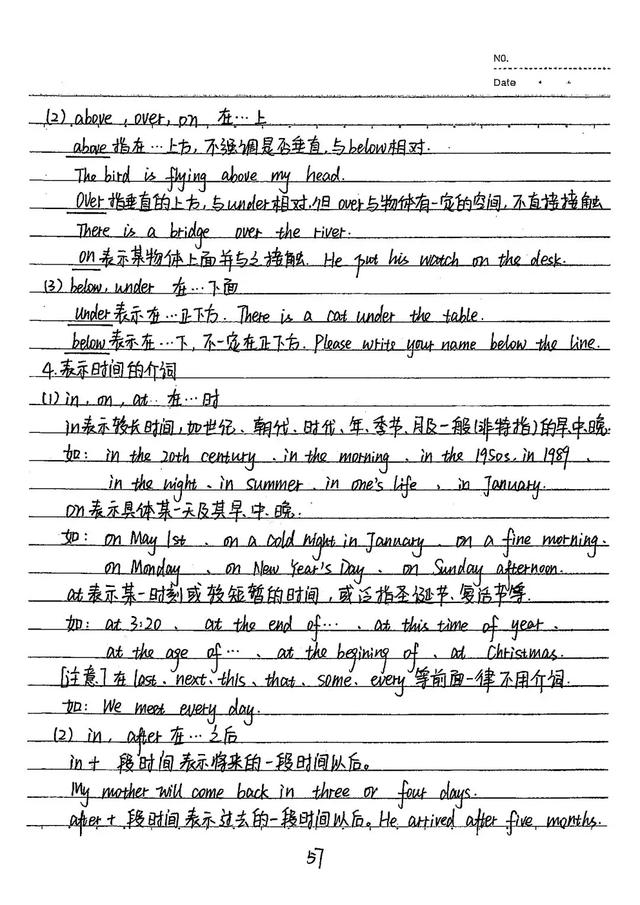 NO.
Date
(2) above, over, on 在…上
above 指在…上方, 不强调是否垂直, 与below相对.
The bird is flying above my head.
Over 指垂直的上方, 与under相对, 但over与物体有一定的空间, 不直接接触
There is a bridge over the river.
on 表示某物体上面并与之接触. He put his watch on the desk.
(3) below, under 在…下面
under 表示在…正下方. There is a cat under the table.
below 表示在…下, 不一定在正下方. Please write your name below the line.
4.表示时间的介词
(1) in, on, at 在…时
in表示较长时间, 如世纪、朝代、时代、年、季节、月及一般(非特指)的早.中.晚.
如: in the 20th century 、in the morning 、in the 1950s. in 1989 、
in the night 、in summer 、in one's life 、in January.
on 表示具体某一天及其早、中、晚.
如: on May 1st 、on a cold night in January 、on a fine morning.
on Monday 、on New Year's Day 、on Sunday afternoon.
at 表示某一时刻或较短暂的时间, 或泛指圣诞节、复活节等.
如: at 3:20 、at the end of… 、at this time of year 、
at the age of… 、at the begining of 、at Christmas.
[注意] 在 last、next、this、that、some、every 等前面一律不用介词.
如: We meet every day.
(2) in, after 在…之后
in + 段时间 表示将来的一段时间以后。
My mother will come back in three or four days.
after + 段时间 表示过去的一段时间以后。He arrived after five months.
57